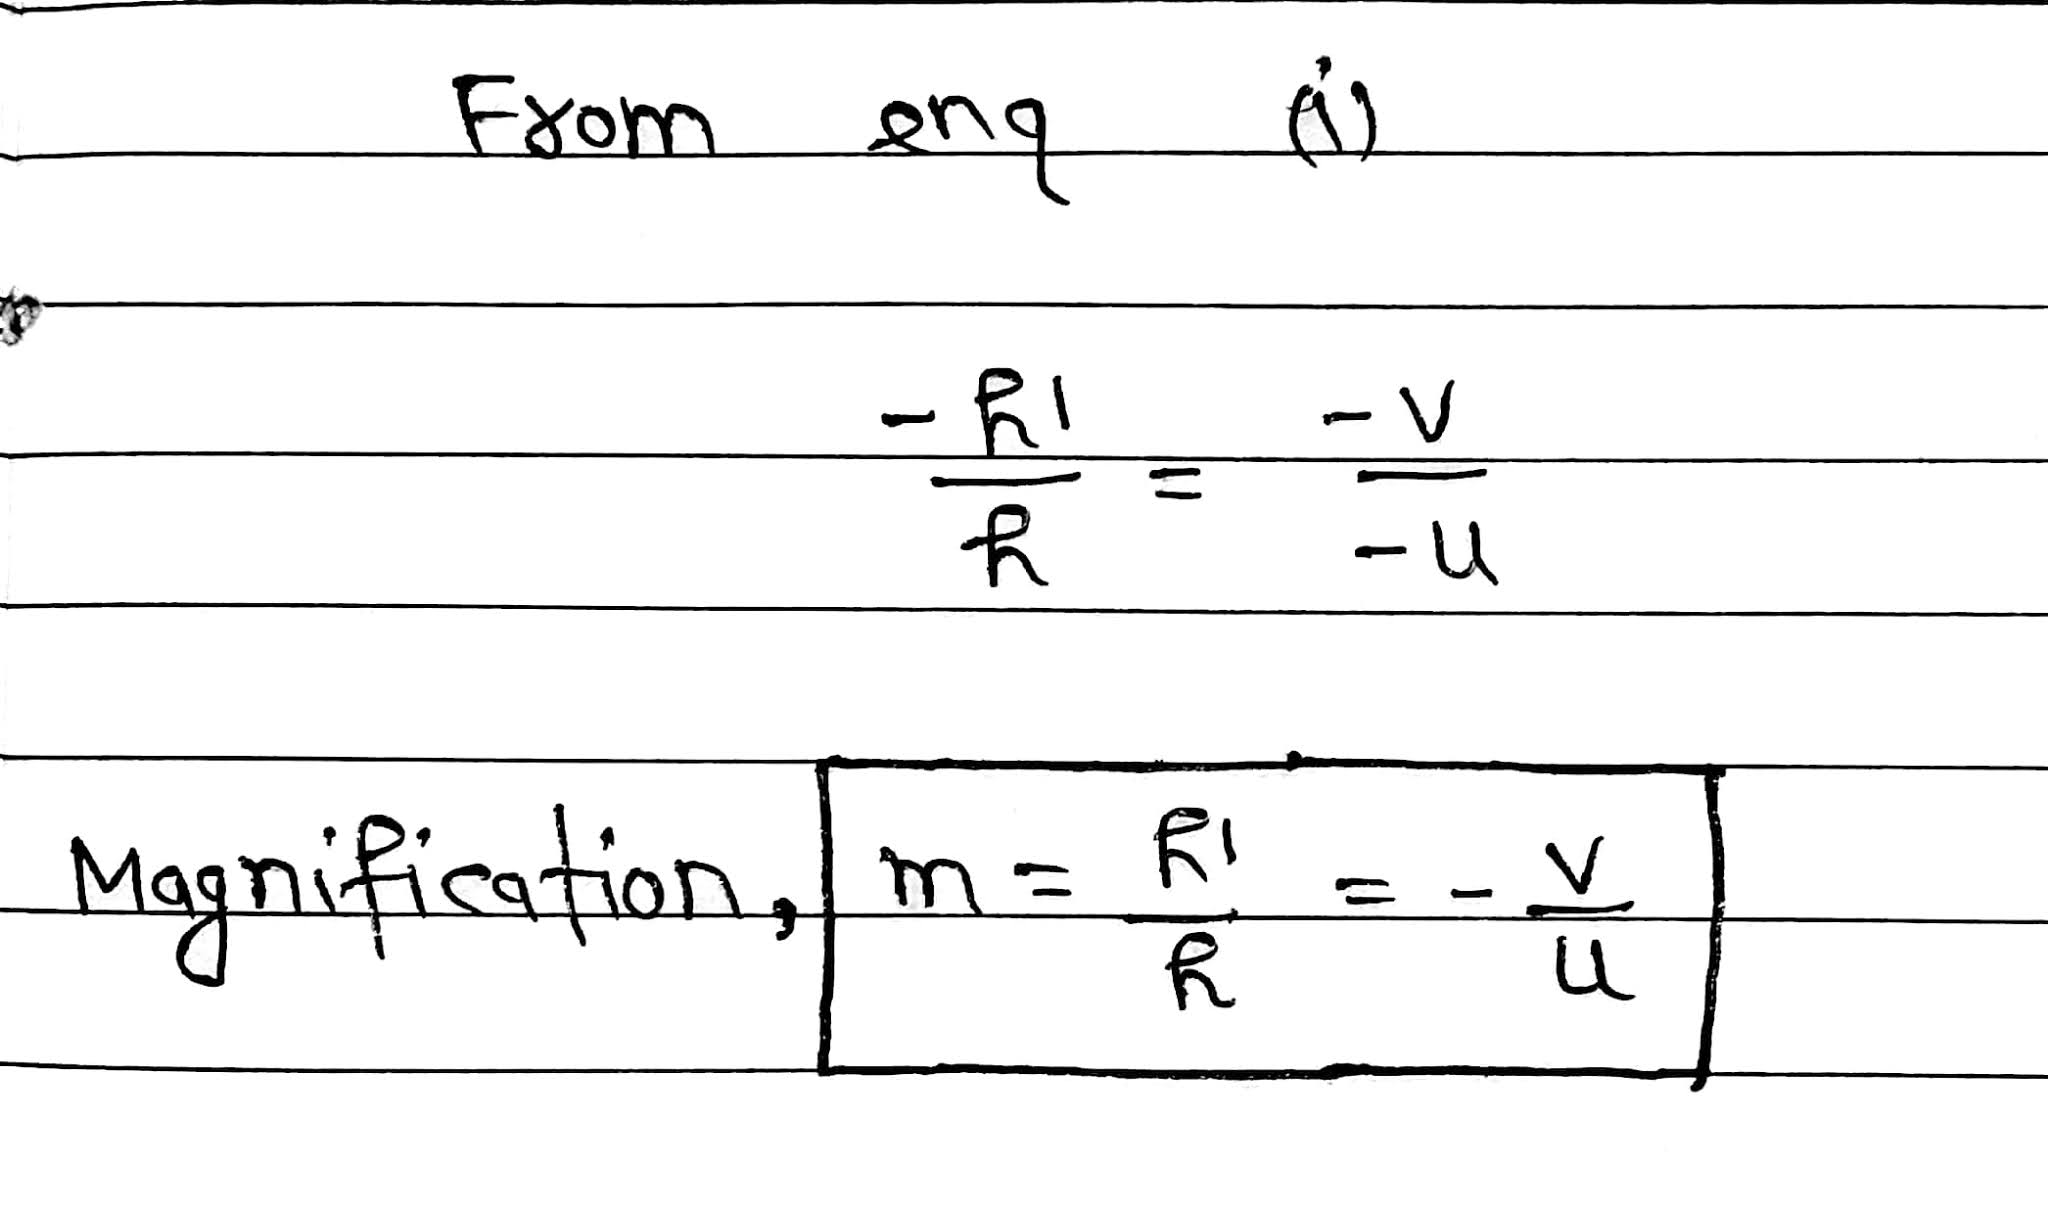 From enq (i)
-h'/h = -v/-u
Magnification, m = h'/h = - v/u